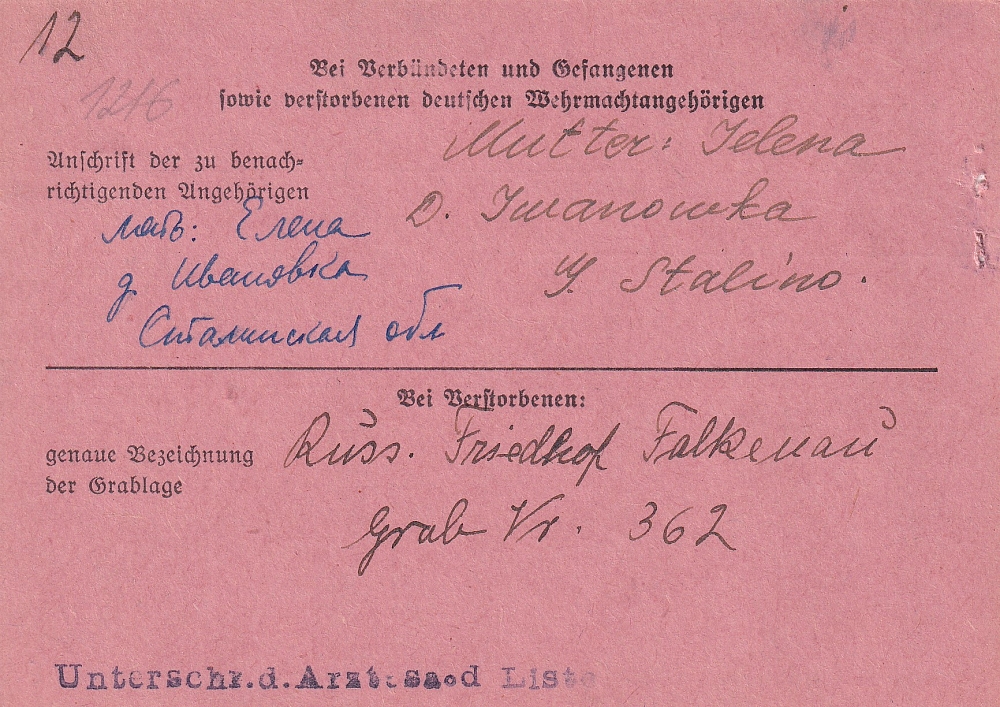 12
1216
Bei Verbündeten und Gefangenen
sowie verstorbenen deutschen Wehrmachtangehörigen
Mutter: Jelena
Anschrift der zu benach-
richtigenden Angehörigen
D. Iwanowka
мать: Елена
д Ивановка
G. Stalino.
Сталинская обл
Bei Verstorbenen:
Russ. Friedhof Falkenau
genaue Bezeichnung
der Grablage
Grab Nr. 362
Unterschr.d.Arztes a.d Liste